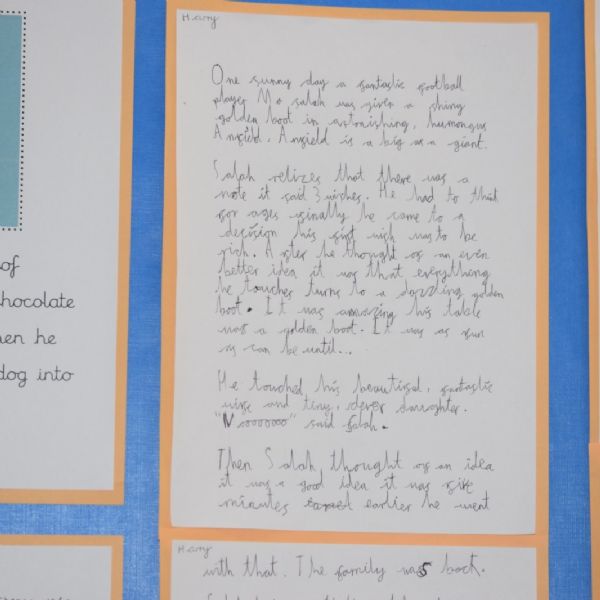 of
chocolate
hen he
dog into
Harry
One sunny day a fantastic football
player Mo salah was given a shiny
golden boot in astonishing, humongus
Anfield. Anfield is a big as a giant.
Salah relizes that there was a
note it said 3 wishes. He had to think
for ages finally he came to a
decision his first wish was to be
rich. After he thought of an even
better idea it was that everything
he touches turns to a dazzling golden
boot. It was amazing his table
was a golden boot. It was as fun
as can be until...
He touched his beautiful, fantastic
wife and tiny, clever daughter.
"Nooooooo" said Salah.
Then Salah thought of an idea
it was a good idea it was five
minutes earlier he went
Harry
with that. The family was back.